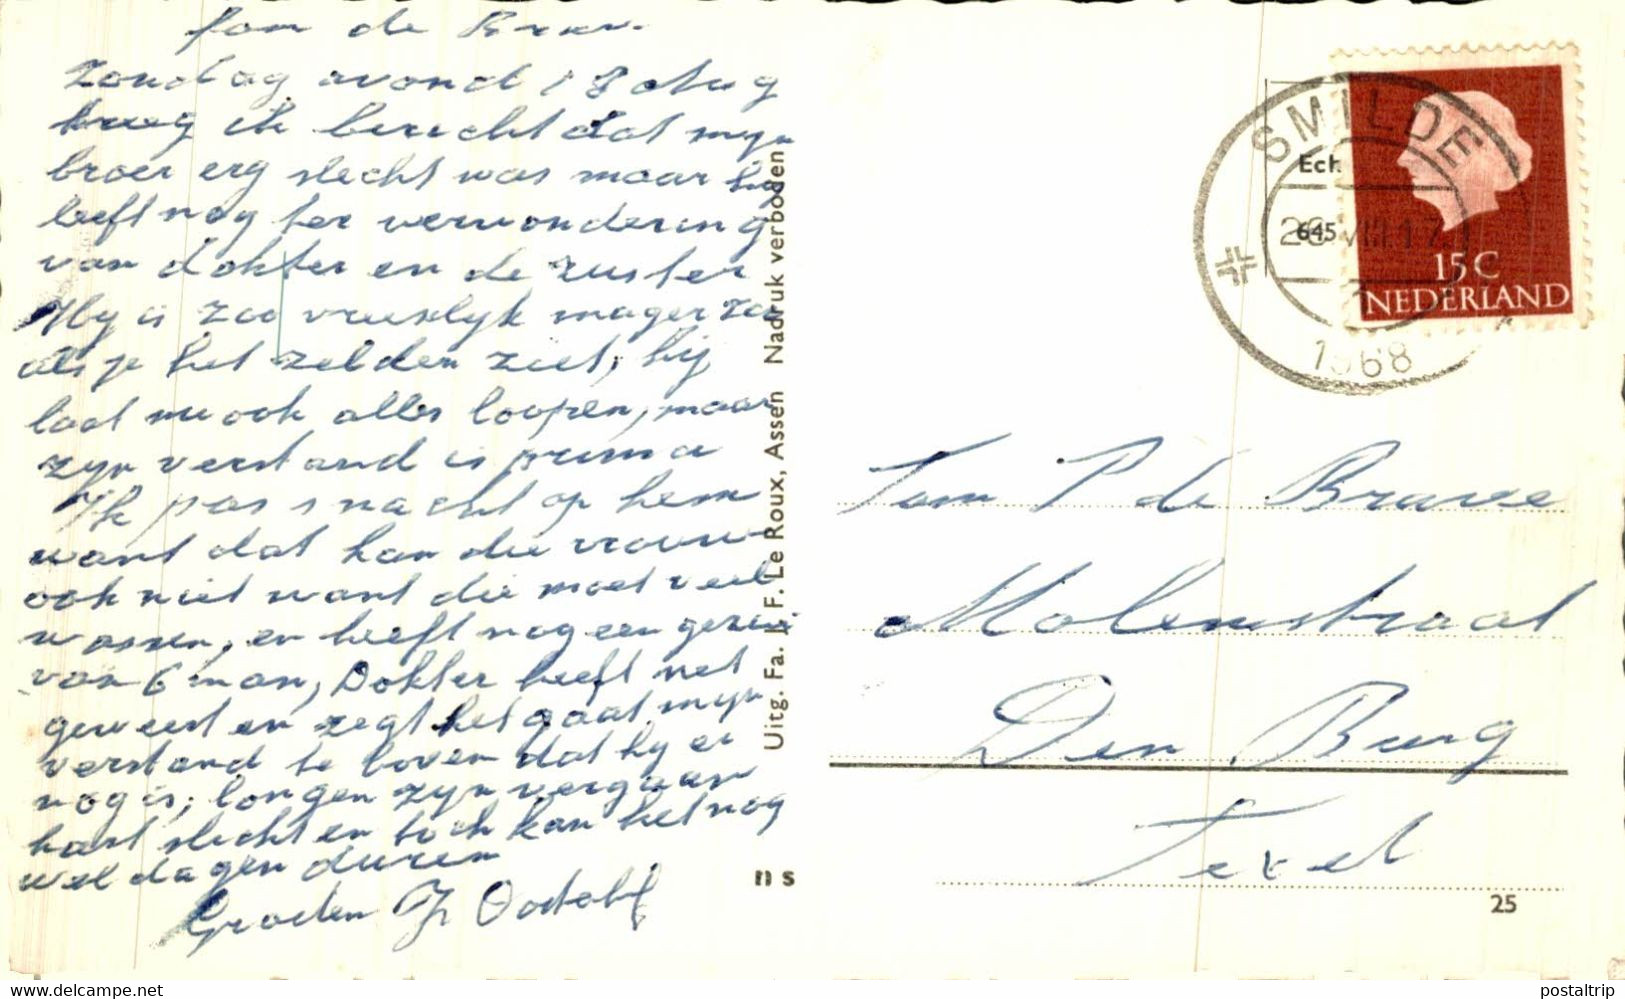 fam de
Zondag avond 18 Aug
kreeg ik bericht dat myn
broer erg slecht was maar hy
leeft nog ter verwondering
van dokter en de zuster
Hy is zoo vreeselyk mager zoo
als je het zelden ziet, hij
laat nu ook alles loopen, maar
zyn verstand is prima
Ik pas s nachts op hem
want dat kan die vrouw
ook niet want die moet veel
wassen, en heeft nog een gezin
van 6 man, Dokter heeft net
geweest en zegt het gaat myn
verstand te boven dat hy er
nog is, longen zyn vergaan
hart slecht en toch kan het nog
wel dagen duren
Groeten
Uitg. Fa. J. F. Le Roux, Assen Nadruk verboden
ns
Ech
645
SMILDE
1968
15 C
NEDERLAND
Fam P de Braree
Molenstraat
Den Burg
Texel
25
© www.delcampe.net
postaltrip